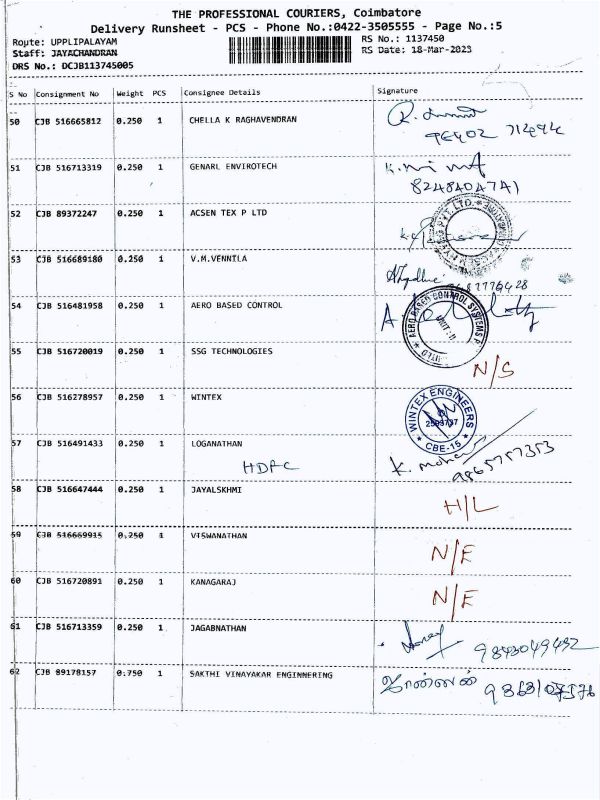 THE PROFESSIONAL COURIERS, Coimbatore
Delivery Runsheet - PCS - Phone No.:0422-3505555 - Page No.:5
Route: UPPLIPALAYAM RS No.: 1137450
Staff: JAYACHANDRAN RS Date: 18-Mar-2023
DRS No.: DCJB113745005
S No Consignment No Weight PCS Consignee Details Signature
50 CJB 516665812 0.250 1 CHELLA K RAGHAVENDRAN
51 CJB 516713319 0.250 1 GENARL ENVIROTECH
8248404741
52 CJB 89372247 0.250 1 ACSEN TEX P LTD
53 CJB 516689180 0.250 1 V.M.VENNILA
54 CJB 516481958 0.250 1 AERO BASED CONTROL
AERO BASED CONTROL SYSTEMS P LTD
UNIT-II
55 CJB 516720019 0.250 1 SSG TECHNOLOGIES N/S
56 CJB 516278957 0.250 1 WINTEX WINTEX ENGINEERS
CBE-15
57 CJB 516491433 0.250 1 LOGANATHAN
HDFC K. mohan 9865757353
58 CJB 516647444 0.250 1 JAYALSKHMI H/L
59 CJB 516669915 0.250 1 VISWANATHAN N/E
60 CJB 516720891 0.250 1 KANAGARAJ N/E
61 CJB 516713359 0.250 1 JAGABNATHAN 9843049492
62 CJB 89178157 0.750 1 SAKTHI VINAYAKAR ENGINNERING